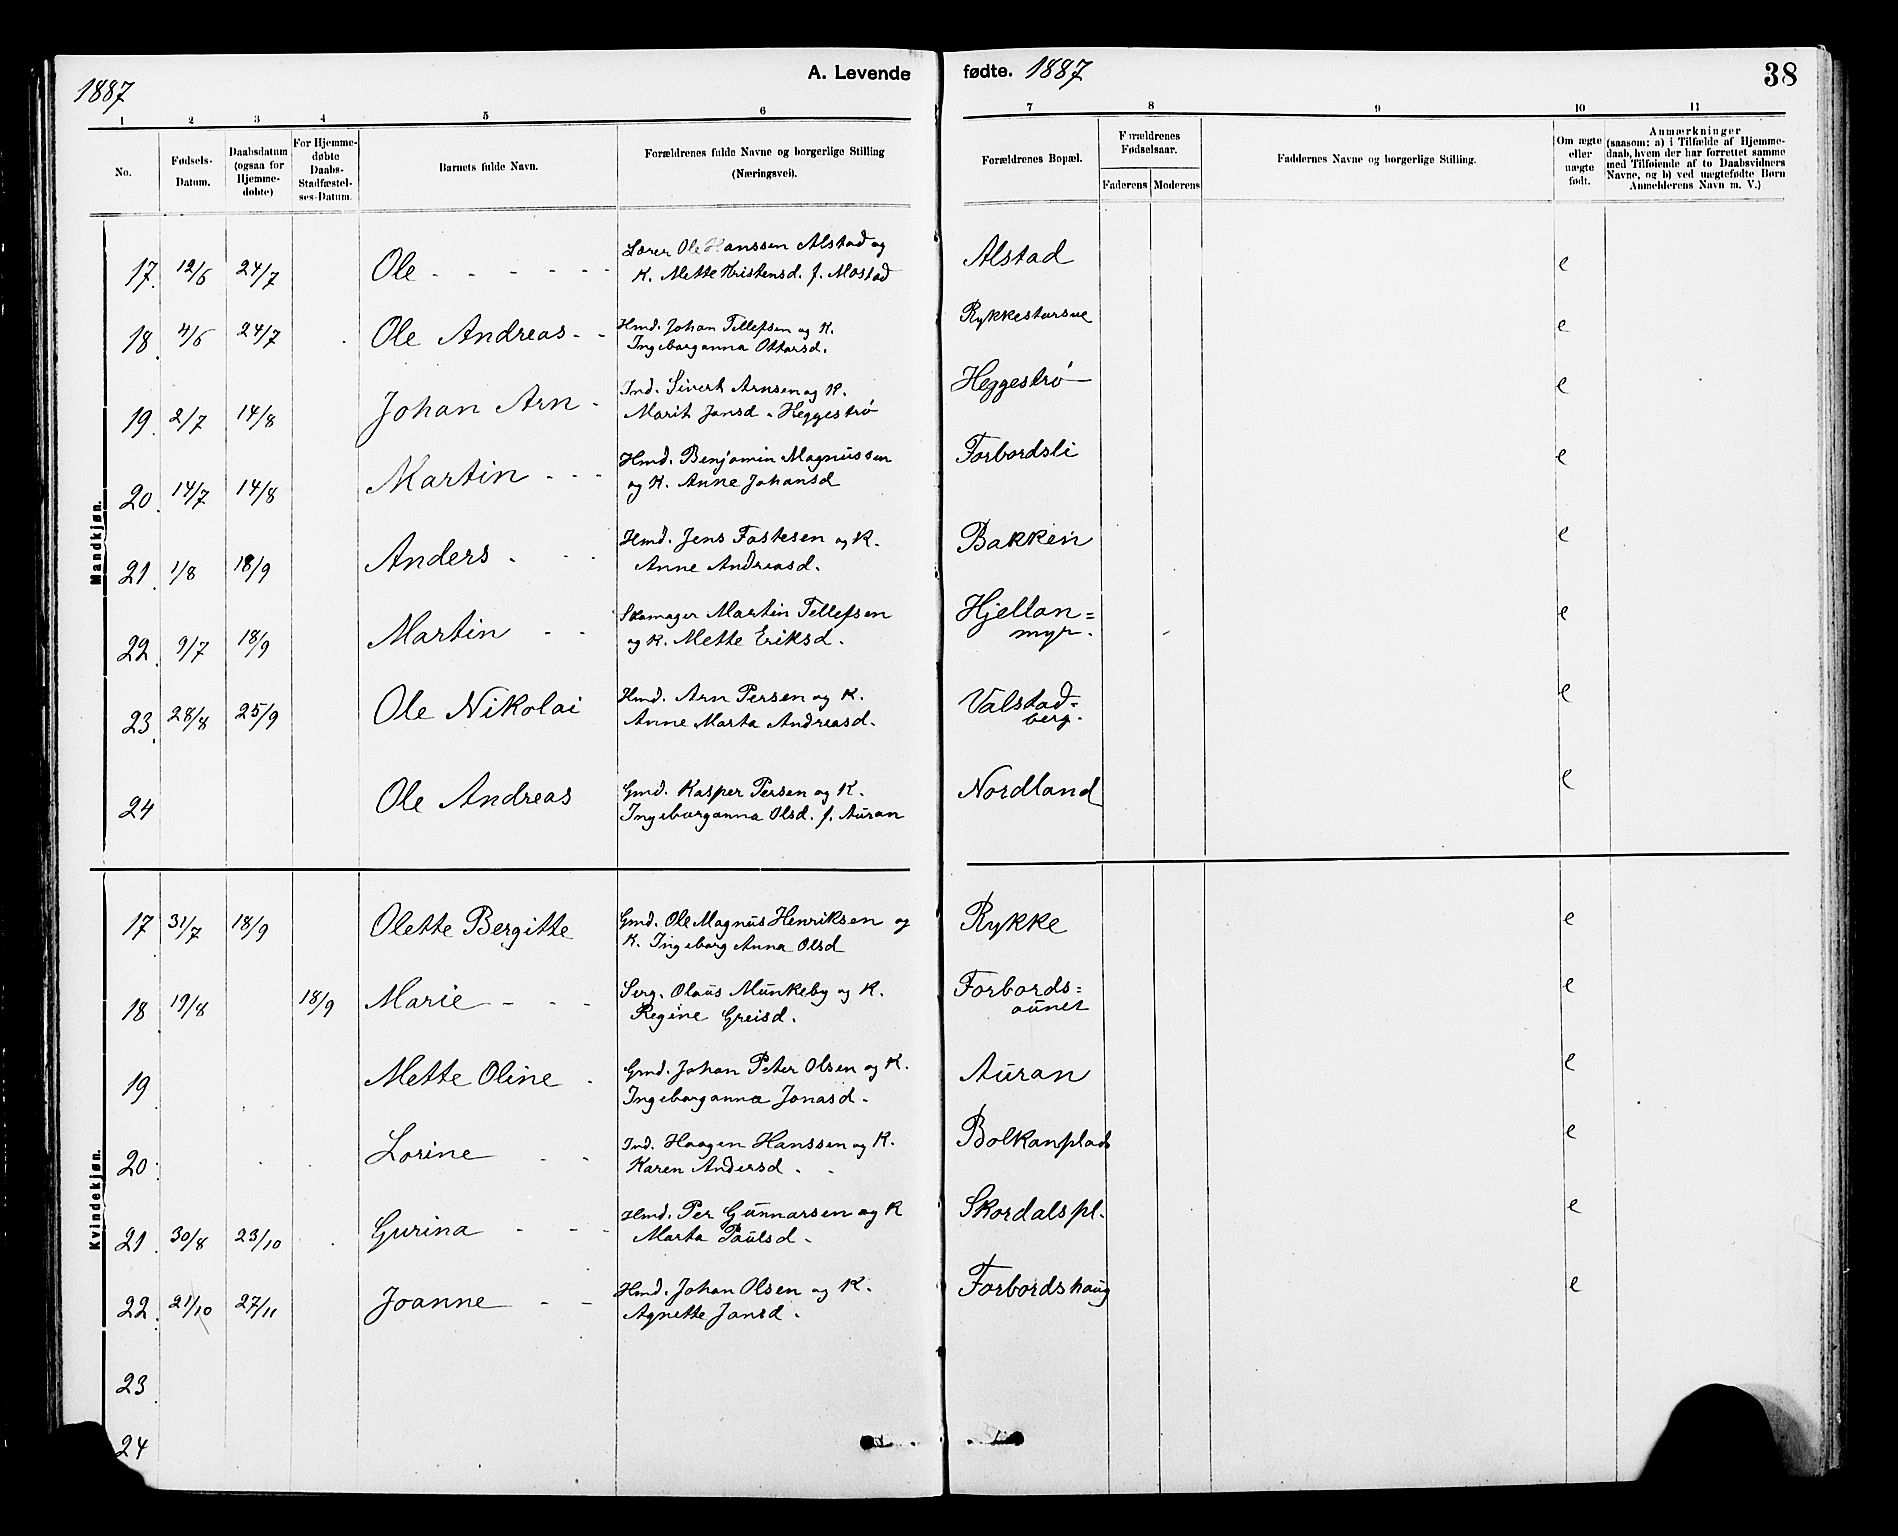 1887
A. Levende fødte. 1887
38
1 2 3 4 5 6 7 8 9 10 11
No.
Fødsels-Datum.
Daabsdatum (ogsaa for Hjemme-døbte)
For Hjemme-døbte Daabs-Stadfæstel-ses-Datum.
Barnets fulde Navn.
Forældrenes fulde Navne og borgerlige Stilling (Næringsvei).
Forældrenes Bopæl.
Forældrenes Fødselsaar.
Faderens Moderens
Faddernes Navne og borgerlige Stilling.
Om ægte eller uægte født.
Anmærkninger (saasom: a) i Tilfælde af Hjemme-daab, hvem der har forrettet samme med Tilføiende af to Daabsvidners Navne, og b) ved uægtefødte Børn Anmelderens Navn m. V.)
Mandkjøn.
17. 12/6 24/7 Ole - - - - - - Lærer Ole Hanssen Alstad og Alstad e
K. Mette Kristensd. f. Mostad
18. 4/6 24/7 Ole Andreas - - Hmd. Johan Tellefsen og K. Rykkestursve e
Ingeborganna Ottarsd.
19. 2/7 14/8 Johan Arn - Ind. Sivert Arnsen og K. Heggestrø e
Marit Jansd. Heggestrø
20. 14/7 14/8 Martin - - - Hmd. Benjamin Magnussen Forbordsli e
og K. Anne Johansd
21. 1/8 18/9 Anders - - - Hmd. Jens Fastesen og K. Bakken e
Anne Andreasd.
22. 9/7 18/9 Martin - - Skomager Martin Tellefsen Hjellan= e
og K. Mette Eriksd. myr.
23. 28/8 25/9 Ole Nikolai Hmd. Arn Persen og K. Valstad= e
Anne Marta Andreasd. berg.
24 Ole Andreas Gmd. Kasper Persen og K. Nordland e
Ingeborganna Olsd. f. Auran
Kvindekjøn.
17 31/7 18/9 Olette Bergitte Gmd. Ole Magnus Henriksen og Rykke e
K. Ingeborg Anna Olsd
18 19/8 18/9 Marie - - - Serg. Olaus Munkeby og K. Forbords= e
Regine Greisd. aunet
19 Mette Oline - Gmd. Johan Peter Olsen og K. Auran e
Ingeborganna Jonasd.
20. Lorine - - Ind. Haagen Hanssen og K. Bolkanplads e
Karen Andersd.
21. 30/8 23/10 Gurina - - - Hmd. Per Gunnarsen og K Skordalspl. e
Marta Paulsd.
22. 21/10 27/11 Joanne - - Hmd. Johan Olsen og K. Forbordshaug e
Agnette Jansd.
23
24